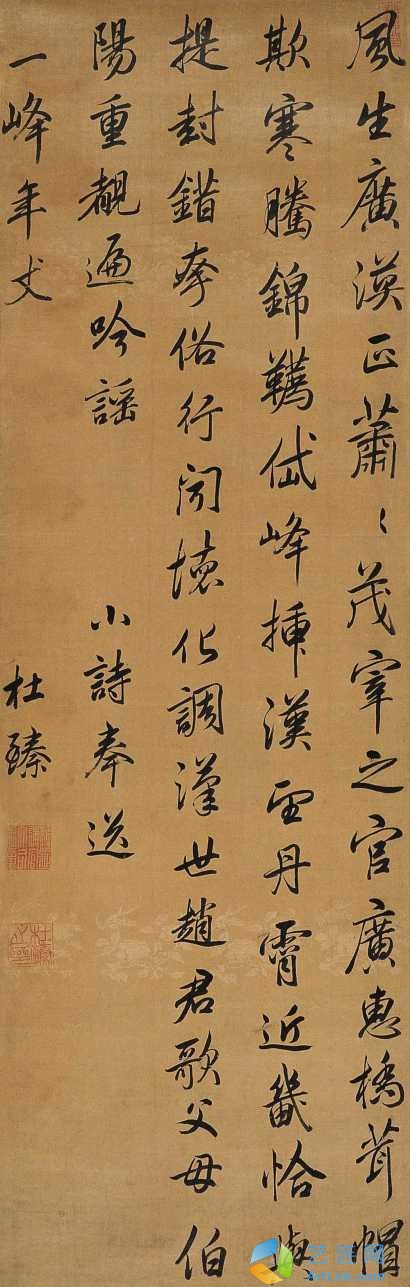 風生廣漠正蕭〻茂宰之官廣惠橋茸帽
欺寒騰錦韉岱峰插漢亞丹霄近畿恰
提封錯俗行聞懷化調漢世趙君歌父母伯
陽重覯遍吟謠 小詩奉送
一峰年丈 杜臻